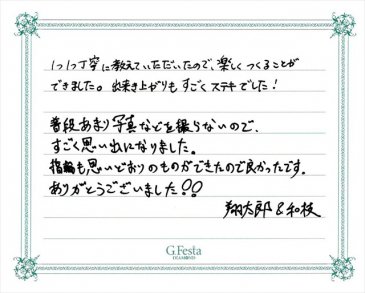 1つ1つ丁寧に教えていただいたので、楽しくつくることが
できました。出来き上がりもすごくステキでした！
普段あまり写真などを撮らないので、
すごく思い出になりました。
指輪も思いどおりのものができたので良かったです。
ありがとうございました！！
翔太郎＆和枝
G.Festa
DIAMOND